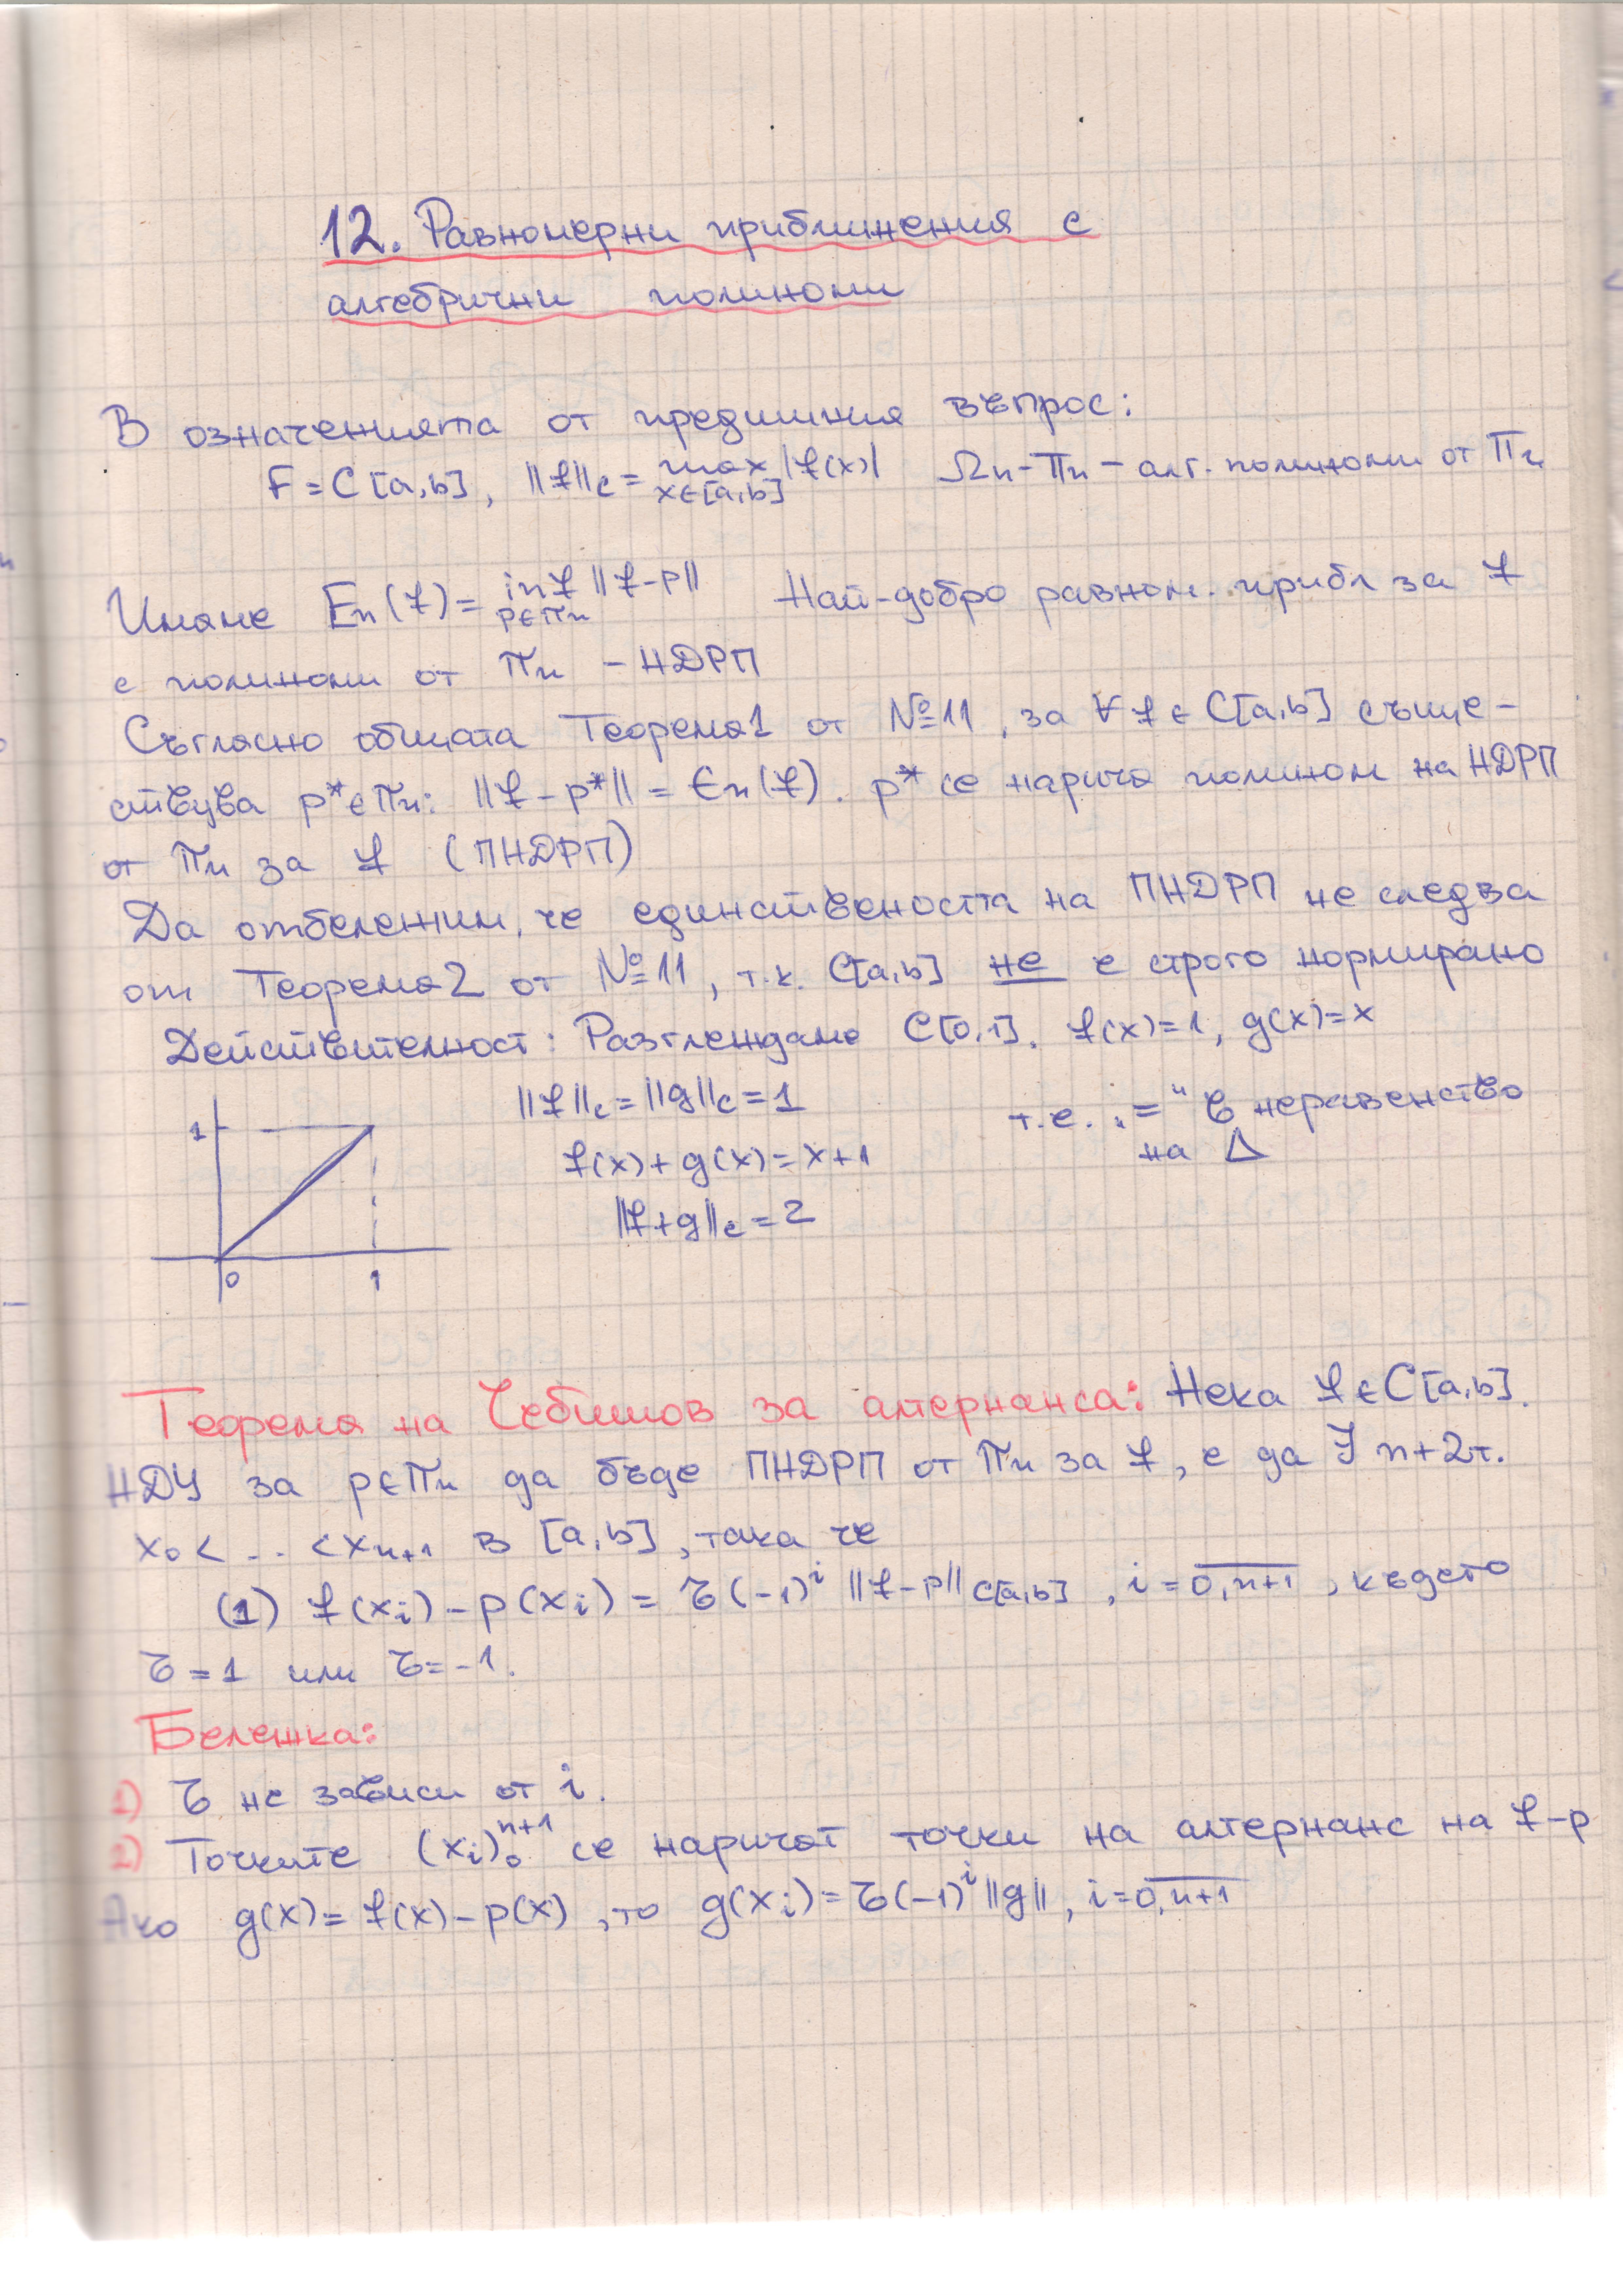 12. Равномерни приближения с
алгебрични полиноми
В означенията от предишния въпрос:
F = C[a,b], ||f||c = max x∈[a,b] |f(x)| Ωn - πn - алг. полиноми от πn
Имаме En(f) = inf p∈πn ||f-p|| Най-добро равном. прибл за f
с полиноми от πn - НДРП
Съгласно общата Теорема1 от №11, за ∀ f ∈ C[a,b] съще-
ствува p* ∈ πn: ||f - p*|| = En(f). p* се нарича полином на НДРП
от πn за f (ПНДРП)
Да отбележим, че единствеността на ПНДРП не следва
от Теорема2 от №11, т.к. C[a,b] не е строго нормирано
Действителност: Разглеждаме C[0,1]. f(x)=1, g(x)=x
||f||c = ||g||c = 1 т.е. "=" в неравенство
1 f(x) + g(x) = x+1 на Δ
||f+g||c = 2
0 1
Теорема на Чебишов за алтернанса: Нека f ∈ C[a,b].
НДУ за p∈πn да бъде ПНДРП от πn за f, е да ∃ n+2т.
x₀ < ... < xₙ₊₁ в [a,b], така че
(1) f(xi) - p(xi) = τ(-1)^i ||f-p|| C[a,b], i = 0,n+1, където
τ = 1 или τ = -1.
Бележка:
1) τ не зависи от i.
2) Точките (xi)₀ⁿ⁺¹ се наричат точки на алтернанс на f-p
Ако g(x) = f(x) - p(x), то g(xi) = τ(-1)^i ||g||, i = 0,n+1